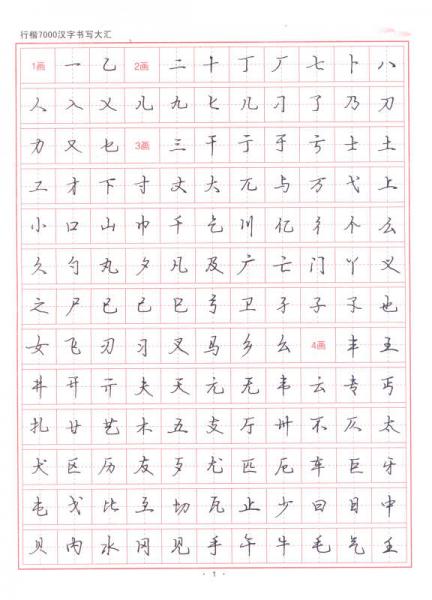 行楷7000汉字书写大汇
1画 一 乙 2画 二 十 丁 厂 七 卜 八
人 入 乂 儿 九 匕 几 刁 了 乃 刀
力 又 乜 3画 三 干 亍 于 亏 士 土
工 才 下 寸 丈 大 兀 与 万 弋 上
小 口 山 巾 千 乞 川 亿 彳 个 么
久 勺 丸 夕 凡 及 广 亡 门 丫 义
之 尸 已 己 巳 弓 卫 孑 子 孓 也
女 飞 刃 习 叉 马 乡 幺 4画 丰 王
井 开 亓 夫 天 元 无 韦 云 专 丐
扎 廿 艺 木 五 支 厅 卅 不 仄 太
犬 区 历 友 歹 尤 匹 厄 车 巨 牙
屯 戈 比 互 切 瓦 止 少 曰 日 中
贝 内 水 冈 见 手 午 牛 毛 气 壬
· 1 ·